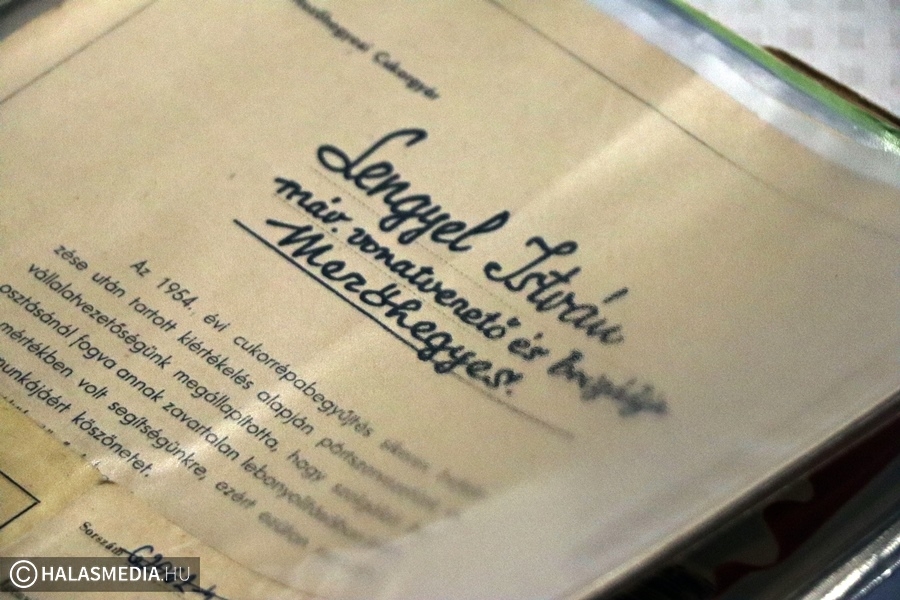 Mezőhegyesi Cukorgyár
Lengyel István
máv. vonatvezető és Brigádja
Mezőhegyes.
Az 1954. évi cukorrépabegyűjtés sikeres
zése után tartott kiértékelés alapján pártszervezetünk
vállalatvezetőségünk megállapította, hogy szolgálati
osztásánál fogva annak zavartalan lebonyolításában
mértékben volt segítségünkre, ezért ezúton
munkájáért köszönetet.
Sorszám
© HALASMEDIA.HU